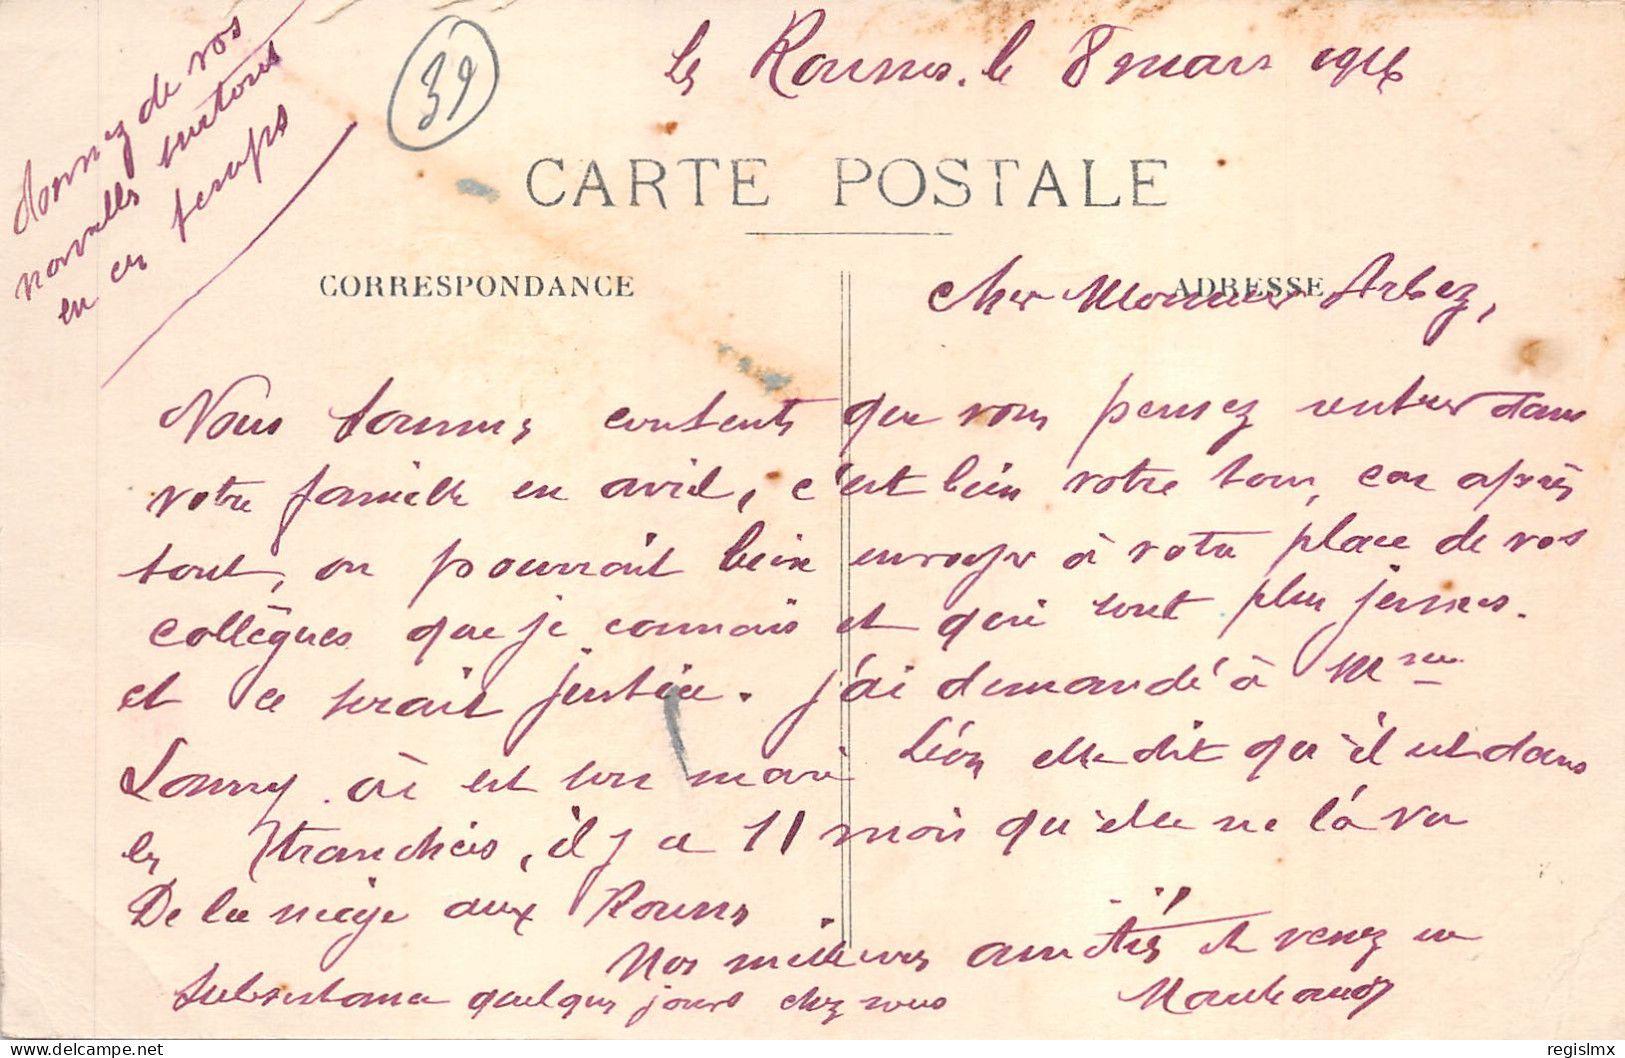 donnez de vos
nouvelles surtout
en ces temps
39
Les Rousses, le 8 mars 1916
CARTE POSTALE
CORRESPONDANCE
ADRESSE
Cher Monsieur Arbez,
Nous sommes contents que vous pensez rentrer dans
votre famille en avril, c'est bien votre tour, car après
tout, on pourrait bien envoyer à votre place de vos
collègues que je connais et qui sont plus jeunes.
et ce serait justice. j'ai demandé à Mme
Lamy où est son mari Léon elle dit qu'il est dans
les tranchées, il y a 11 mois qu'elle ne l'a vu
De la neige aux Rousses
Nos meilleures amitiés et venez en
subsistance quelques jours chez nous
regislmx